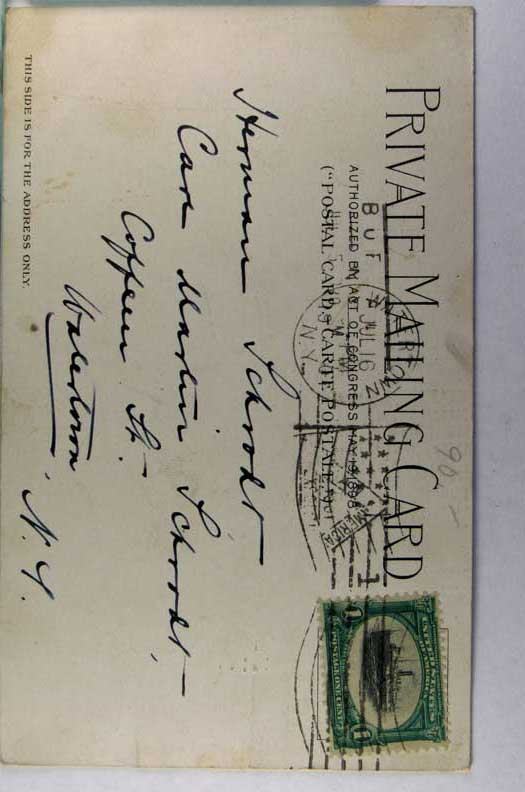 PRIVATE MAILING CARD
AUTHORIZED BY ACT OF CONGRESS MAY 19, 1898
("POSTAL CARD-CARTE POSTALE")
BUF
JUL 16
N.Y.
AMERICA
1
90-
1 POSTAGE ONE CENT 1
Herman Schrodt
Care Martin Schrodt,
Coffeen St.
Watertown, N.Y.
THIS SIDE IS FOR THE ADDRESS ONLY.